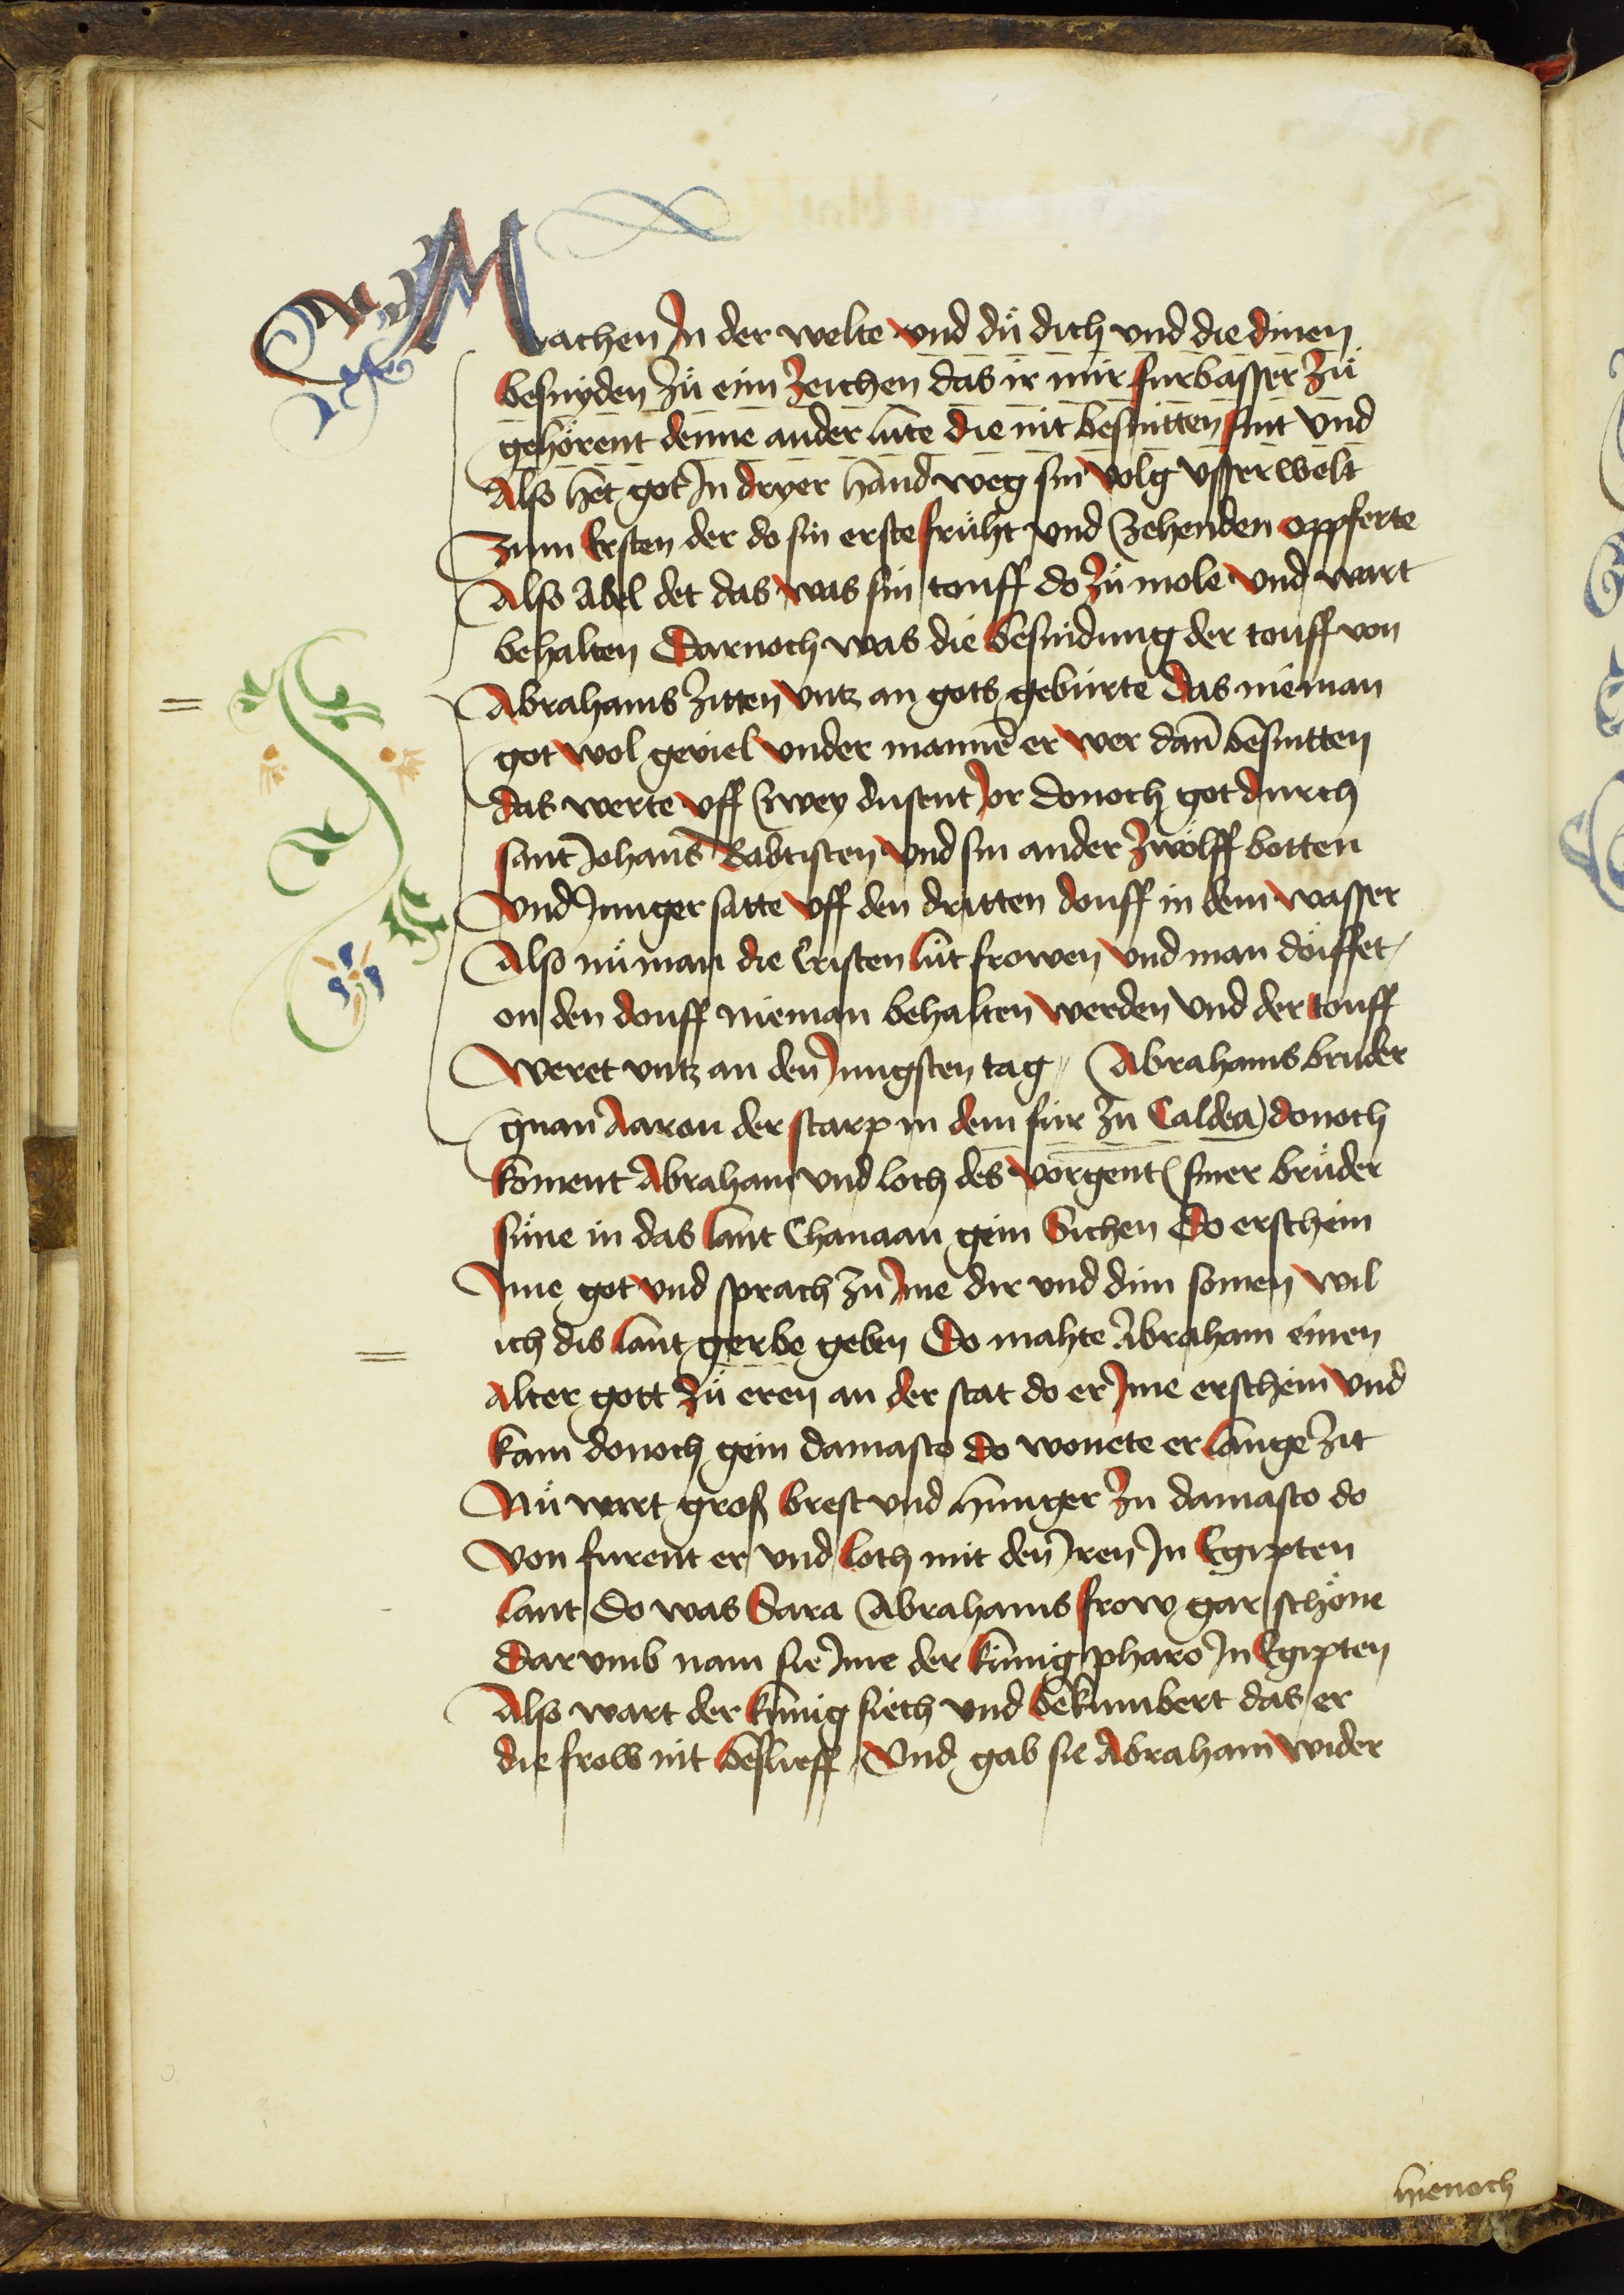 Machen In der welte vnd dů dich vnd die dinen
besnyden zů eim zeichen das ir mir furbasser zů
gehörent denne ander lüte die nit besnitten sint Vnd
Also het got In dryer hand weg sin volg vsserwelt
Zum Ersten der do sin erste früht vnd zehenden oppferte
Also Abel det das was sin touff do zů mole vnd wart
behalten Darnoch was die besnidung der touff von
Abrahams zitten vntz an gots gebürte das nieman
got wol geviel vnder mannē er wer dañ besnitten
das werte vff zwey dusent Jor Donoch got durch
sant Johans Babtisten vnd sin ander zwölff botten
vnd Junger satte vff den dritten douff in dem wasser
Also nů man die Cristen lüt frowen vnd man döiffet
on den douff nieman behalten werden vnd der touff
weret vntz an den Jungsten tag Abrahams bruder
gnan Aaron der starp in dem für zu Caldea donoch
koment Abraham vnd loth des vorgent siner brüder
süne in das lant Chanaan gein Sichen Do erschein
Ime got vnd sprach zu Ime dir vnd dim somen wil
ich dis lant gerbe geben Do mahte Abraham einen
Alter gott zů eren an der stat do er Ime erschein vnd
kam donoch gein damasco do wonete er lange zit
Nů wart groß brest vnd hunger zu damasco do
von furent er vnd loth mit den Iren In Egipten
lant Do was Sara Abrahams frow gar schöne
Darvmb nam sie Ime der künig pharo In Egipten
Also wart der künig siech vnd bekumbert das er
die frow nit beslieff Vnd gab sie Abraham wider
hienoch